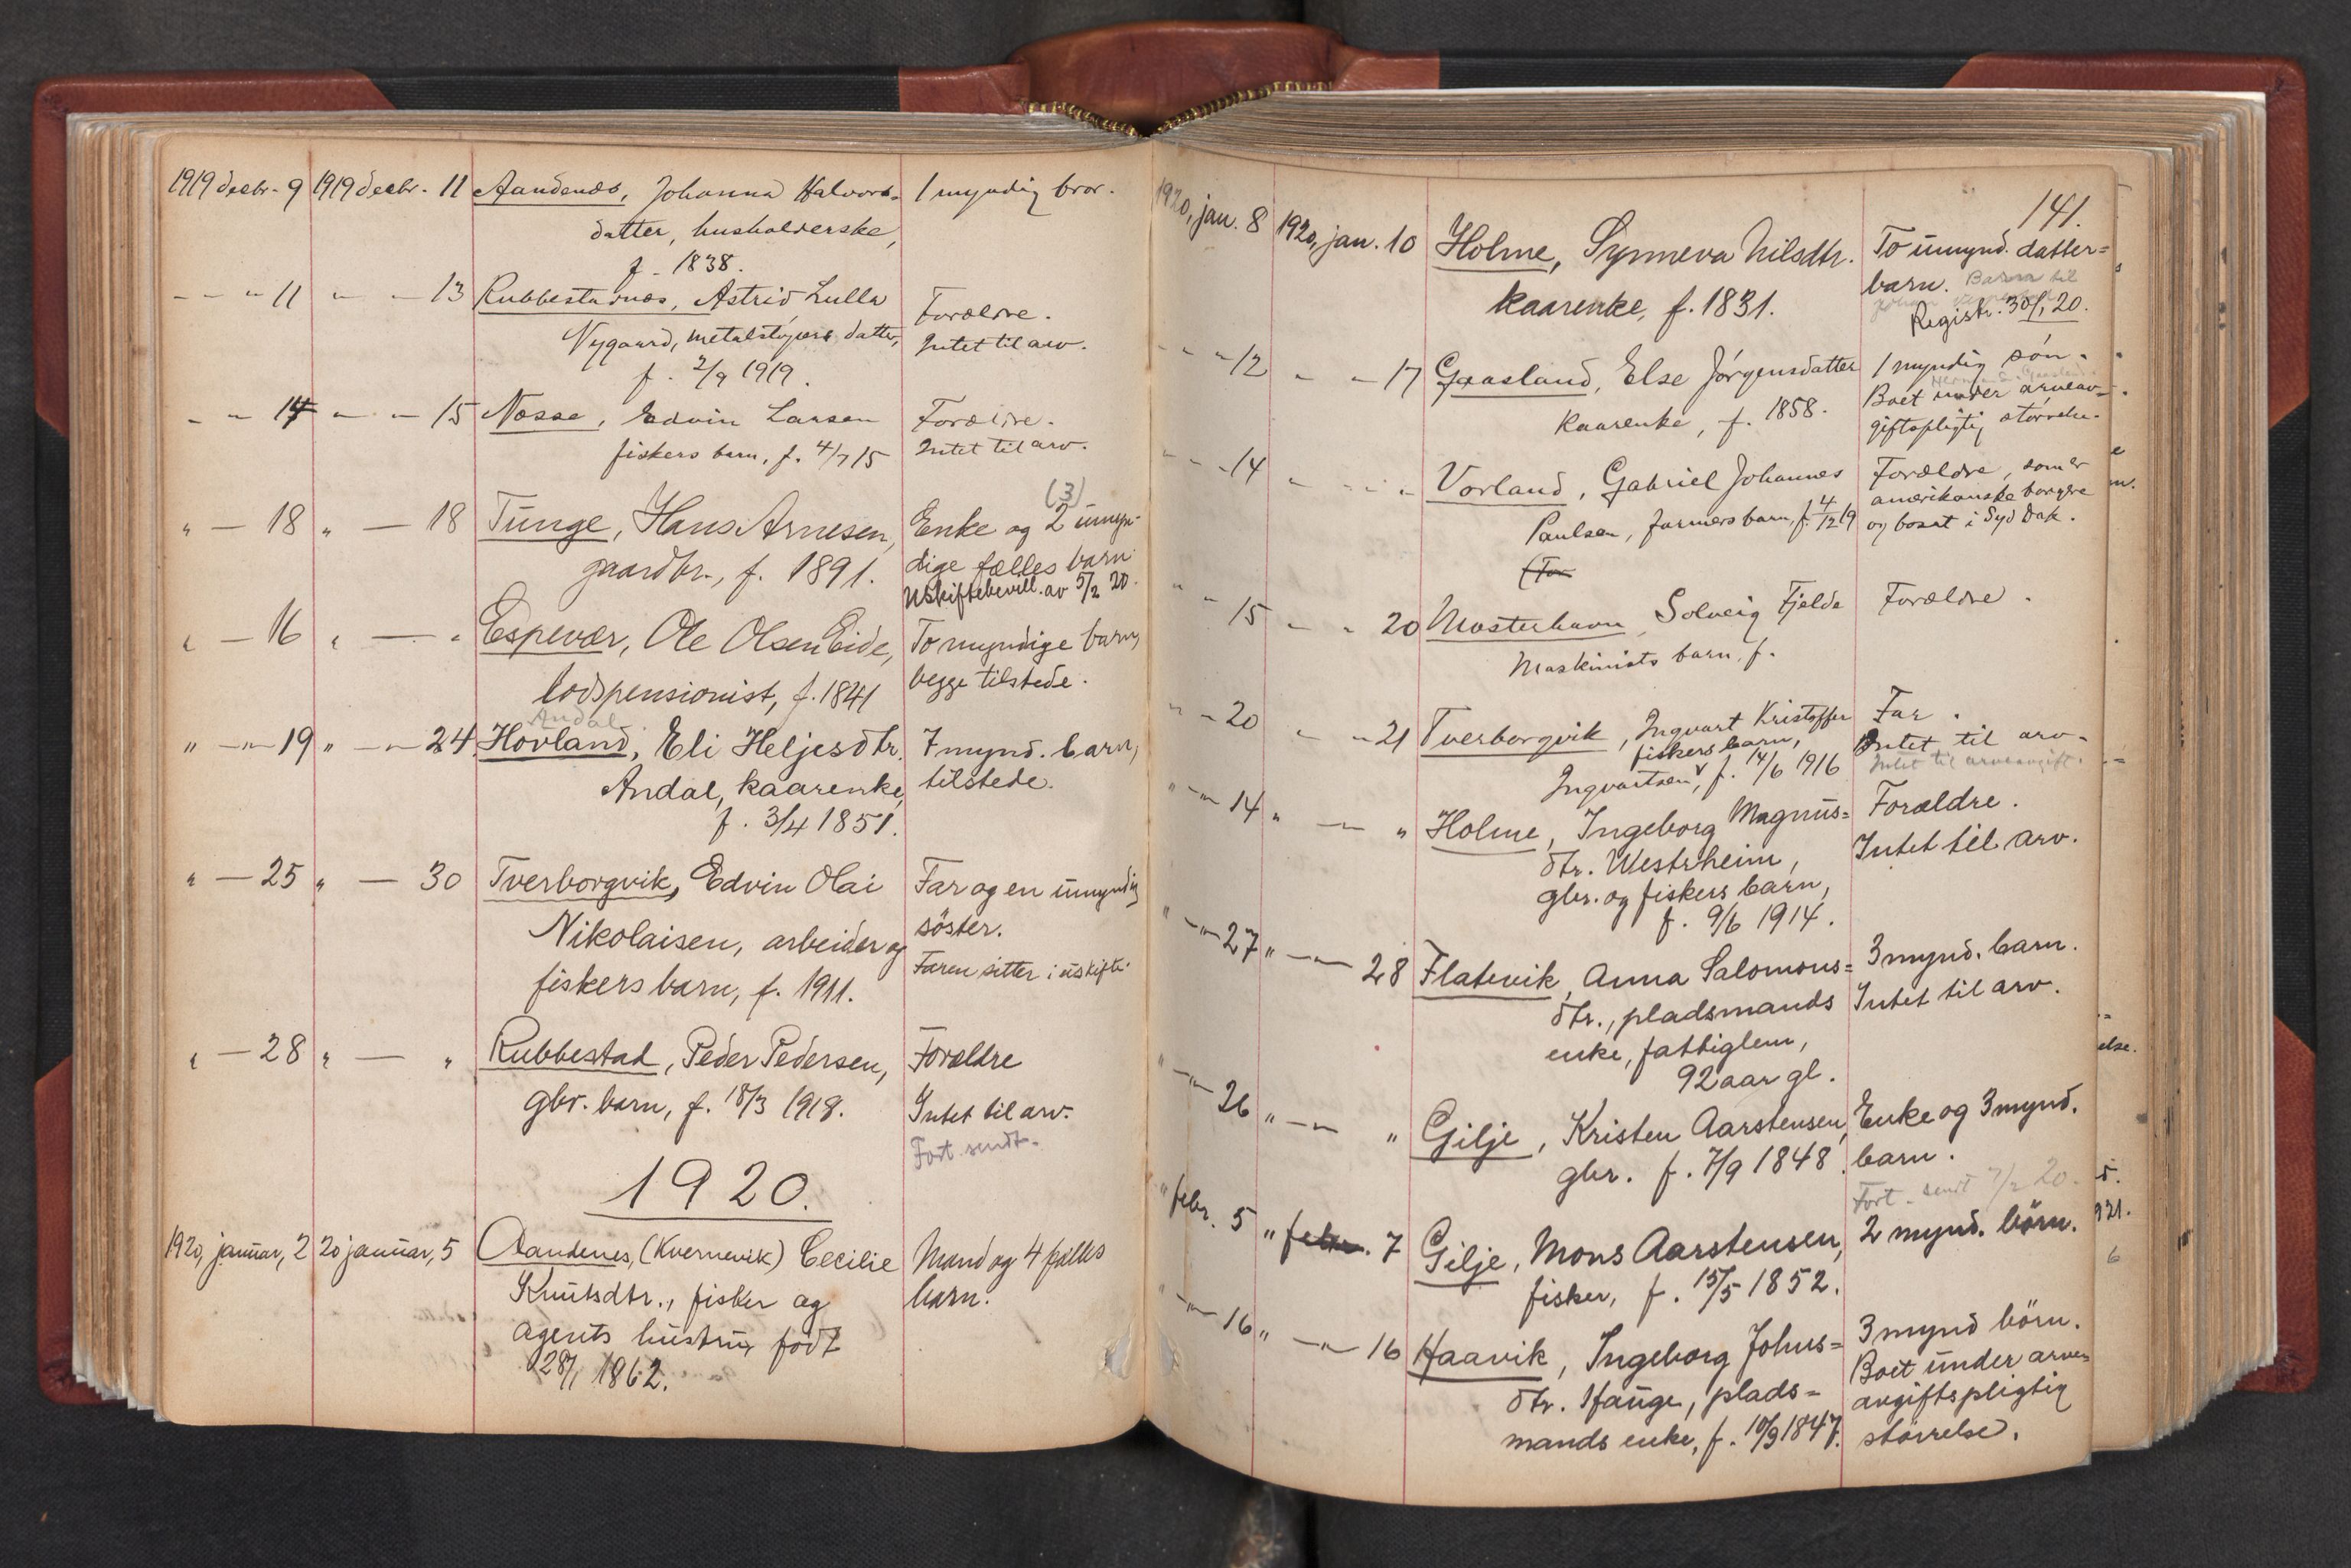 1919 decbr. 9 1919 decbr. 11 Aandenes, Johanna Halvors- 1 myndig bror.
datter, husholderske,
f. 1838.
— — " 11 " — 13 Rubbestadnes, Astrid Lulla Forældre.
Nygaard, metalstöpers datter, Intet til arv.
f. 2/9 1919.
— — 14 — — 15 Nesse, Edvin Larsen Forældre.
fiskers barn, f. 4/7 15 Intet til arv.
(3)
" — 18 " — 18 Tunge, Hans Arnesen, Enke og 2 umyn-
gaardbr., f. 1891. dige fælles barn
Uskiftebevill. av 5/2 20.
" — 16 " — " Espevær, Ole Olsen Eide, To myndige barn,
lodspensionist, f. 1841 begge tilstede.
Andal
" — " — 19 " — " — 24 Hovland, Eli Heljesdtr. 7 mynd. barn,
Andal, kaarenke, tilstede.
f. 3/4 1851.
" — 25 " — 30 Tverborgvik, Edvin Olai Far og en umyndig
Nikolaisen, arbeider og söster.
fiskers barn, f. 1911. Faren sitter i uskifte.
" — 28 " — " Rubbestad, Peder Pedersen, Forældre
gbr. barn, f. 18/3 1918. Intet til arv.
Fort. sendt.
1920.
1920, januar, 2 20 januar, 5 Aandenes, (Kvernevik) Cecilie Mand og 4 fælles
Knutsdtr., fisker og barn.
agents hustru, född
28/1 1862.
141.
1920, jan. 8 1920, jan. 10 Holme, Synneva Nilsdtr. To umynd. datter=
kaarenke, f. 1831. barn. Barna til
Registr. 30/1 20.
— — " 12 " — 17 Gaasland, Else Jörgensdatter 1 myndig sön.
kaarenke, f. 1858. Boet under arveav-
giftspligtig störrelse.
— — 14 " — — " Vorland, Gabriel Johannes Forældre, som er
Paulsen, farmers barn, f. 4/12 19 amerikanske borgere
og bosat i Syd Dak.
(For
" " 15 " — " 20 Mosterhavn, Solveig Fjelde Forældre.
Maskinists barn, f.
" — 20 " — " 21 Tverborgvik, Ingvart Kristoffer Far.
fiskers barn, Intet til arv.
Ingvartsen, f. 14/6 1916 Intet til arveavgift.
" — " — 14 " — " Holme, Ingeborg Magnus= Forældre.
dtr. Westrheim, Intet til arv.
gbr. og fiskers barn,
f. 9/6 1914.
" — " — 27 " — " — 28 Flatevik, Anna Salomons= 3 mynd. barn.
dtr., pladsmands Intet til arv.
enke, fattiglem,
92 aar gl.
" — " — 26 " — " — " Gilje, Kristen Aarstensen, Enke og 3 mynd.
gbr. f. 7/9 1848. barn.
Fort. sendt 7/2 20.
" febr. 5 " febr. 7 Gilje, Mons Aarstensen, 2 mynd. börn.
fisker, f. 15/5 1852.
" — " — 16 " — " — 16 Haavik, Ingeborg Johns= 3 mynd börn.
dtr. Hauge, plads= Boet under arve=
mands enke, f. 10/9 1847. avgiftspligtig
störrelse.